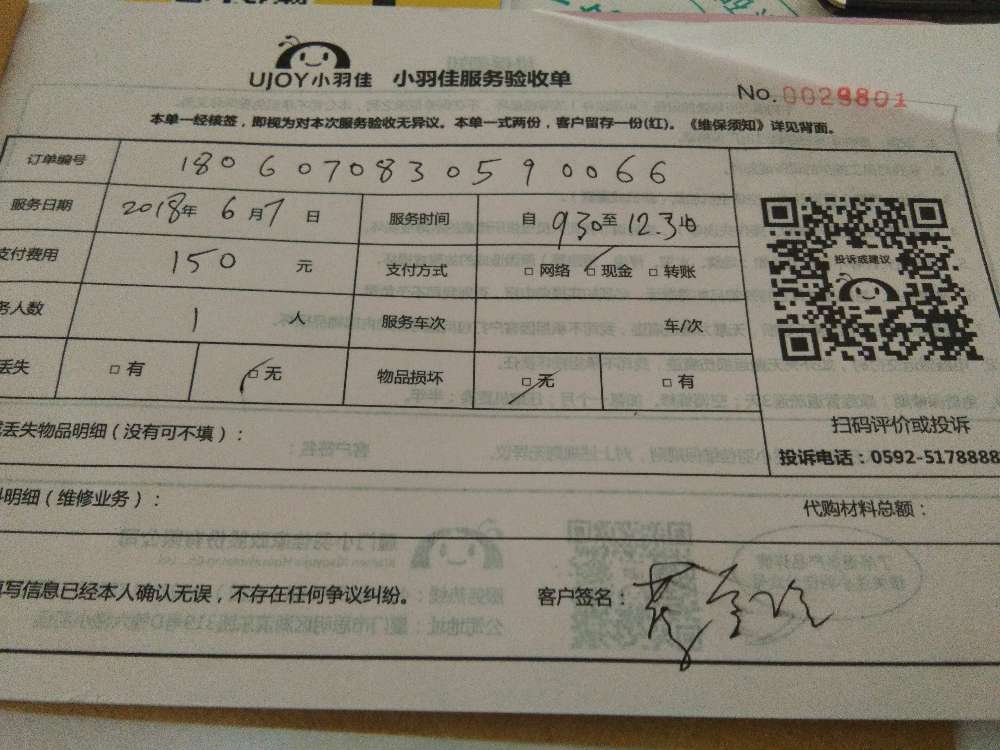 UJOY小羽佳 小羽佳服务验收单
No. 0029801
本单一经核签，即视为对本次服务验收无异议。本单一式两份，客户留存一份(红)。《维保须知》详见背面。
订单编号 180607083059 0066
服务日期 2018年 6月7日 服务时间 自 930 至 12.30
支付费用 150 元 支付方式 □网络 □现金 □转账
务人数 1 人 服务车次 车/次
丢失 □有 □无 物品损坏 □无 □有
投诉或建议
扫码评价或投诉
投诉电话：0592-5178888
丢失物品明细（没有可不填）：
料明细（维修业务）： 代购材料总额：
填写信息已经本人确认无误，不存在任何争议纠纷。 客户签名：